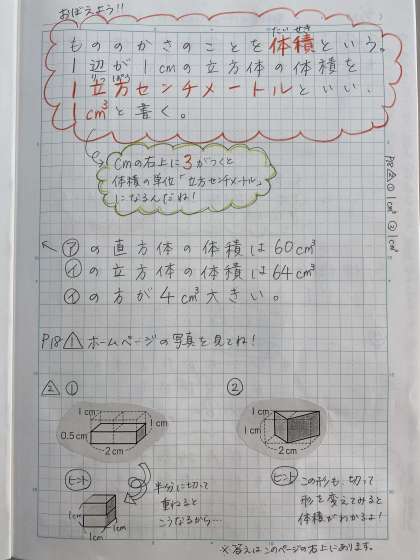 おぼえよう!!
もののかさのことを体積という。
たいせき
1辺が1cmの立方体の体積を
りっぽう
1立方センチメートルといい、
1cm³と書く。
cmの右上に3がつくと
体積の単位「立方センチメートル」
になるんだね!
P18 ⚠ ① 1cm³ ② 1cm³
㋐の直方体の体積は60cm³
㋑の立方体の体積は64cm³
㋑の方が4cm³大きい。
P18 △1 ホームページの写真を見てね!
△2 ①
1cm
1cm
0.5cm
2cm
ヒント
半分に切って
重ねると
こうなるから…
1cm
1cm
1cm
②
1cm
1cm
2cm
ヒント
この形も、切って
形を変えてみると
体積がわかるよ!
※答えはこのページの右上にあります。